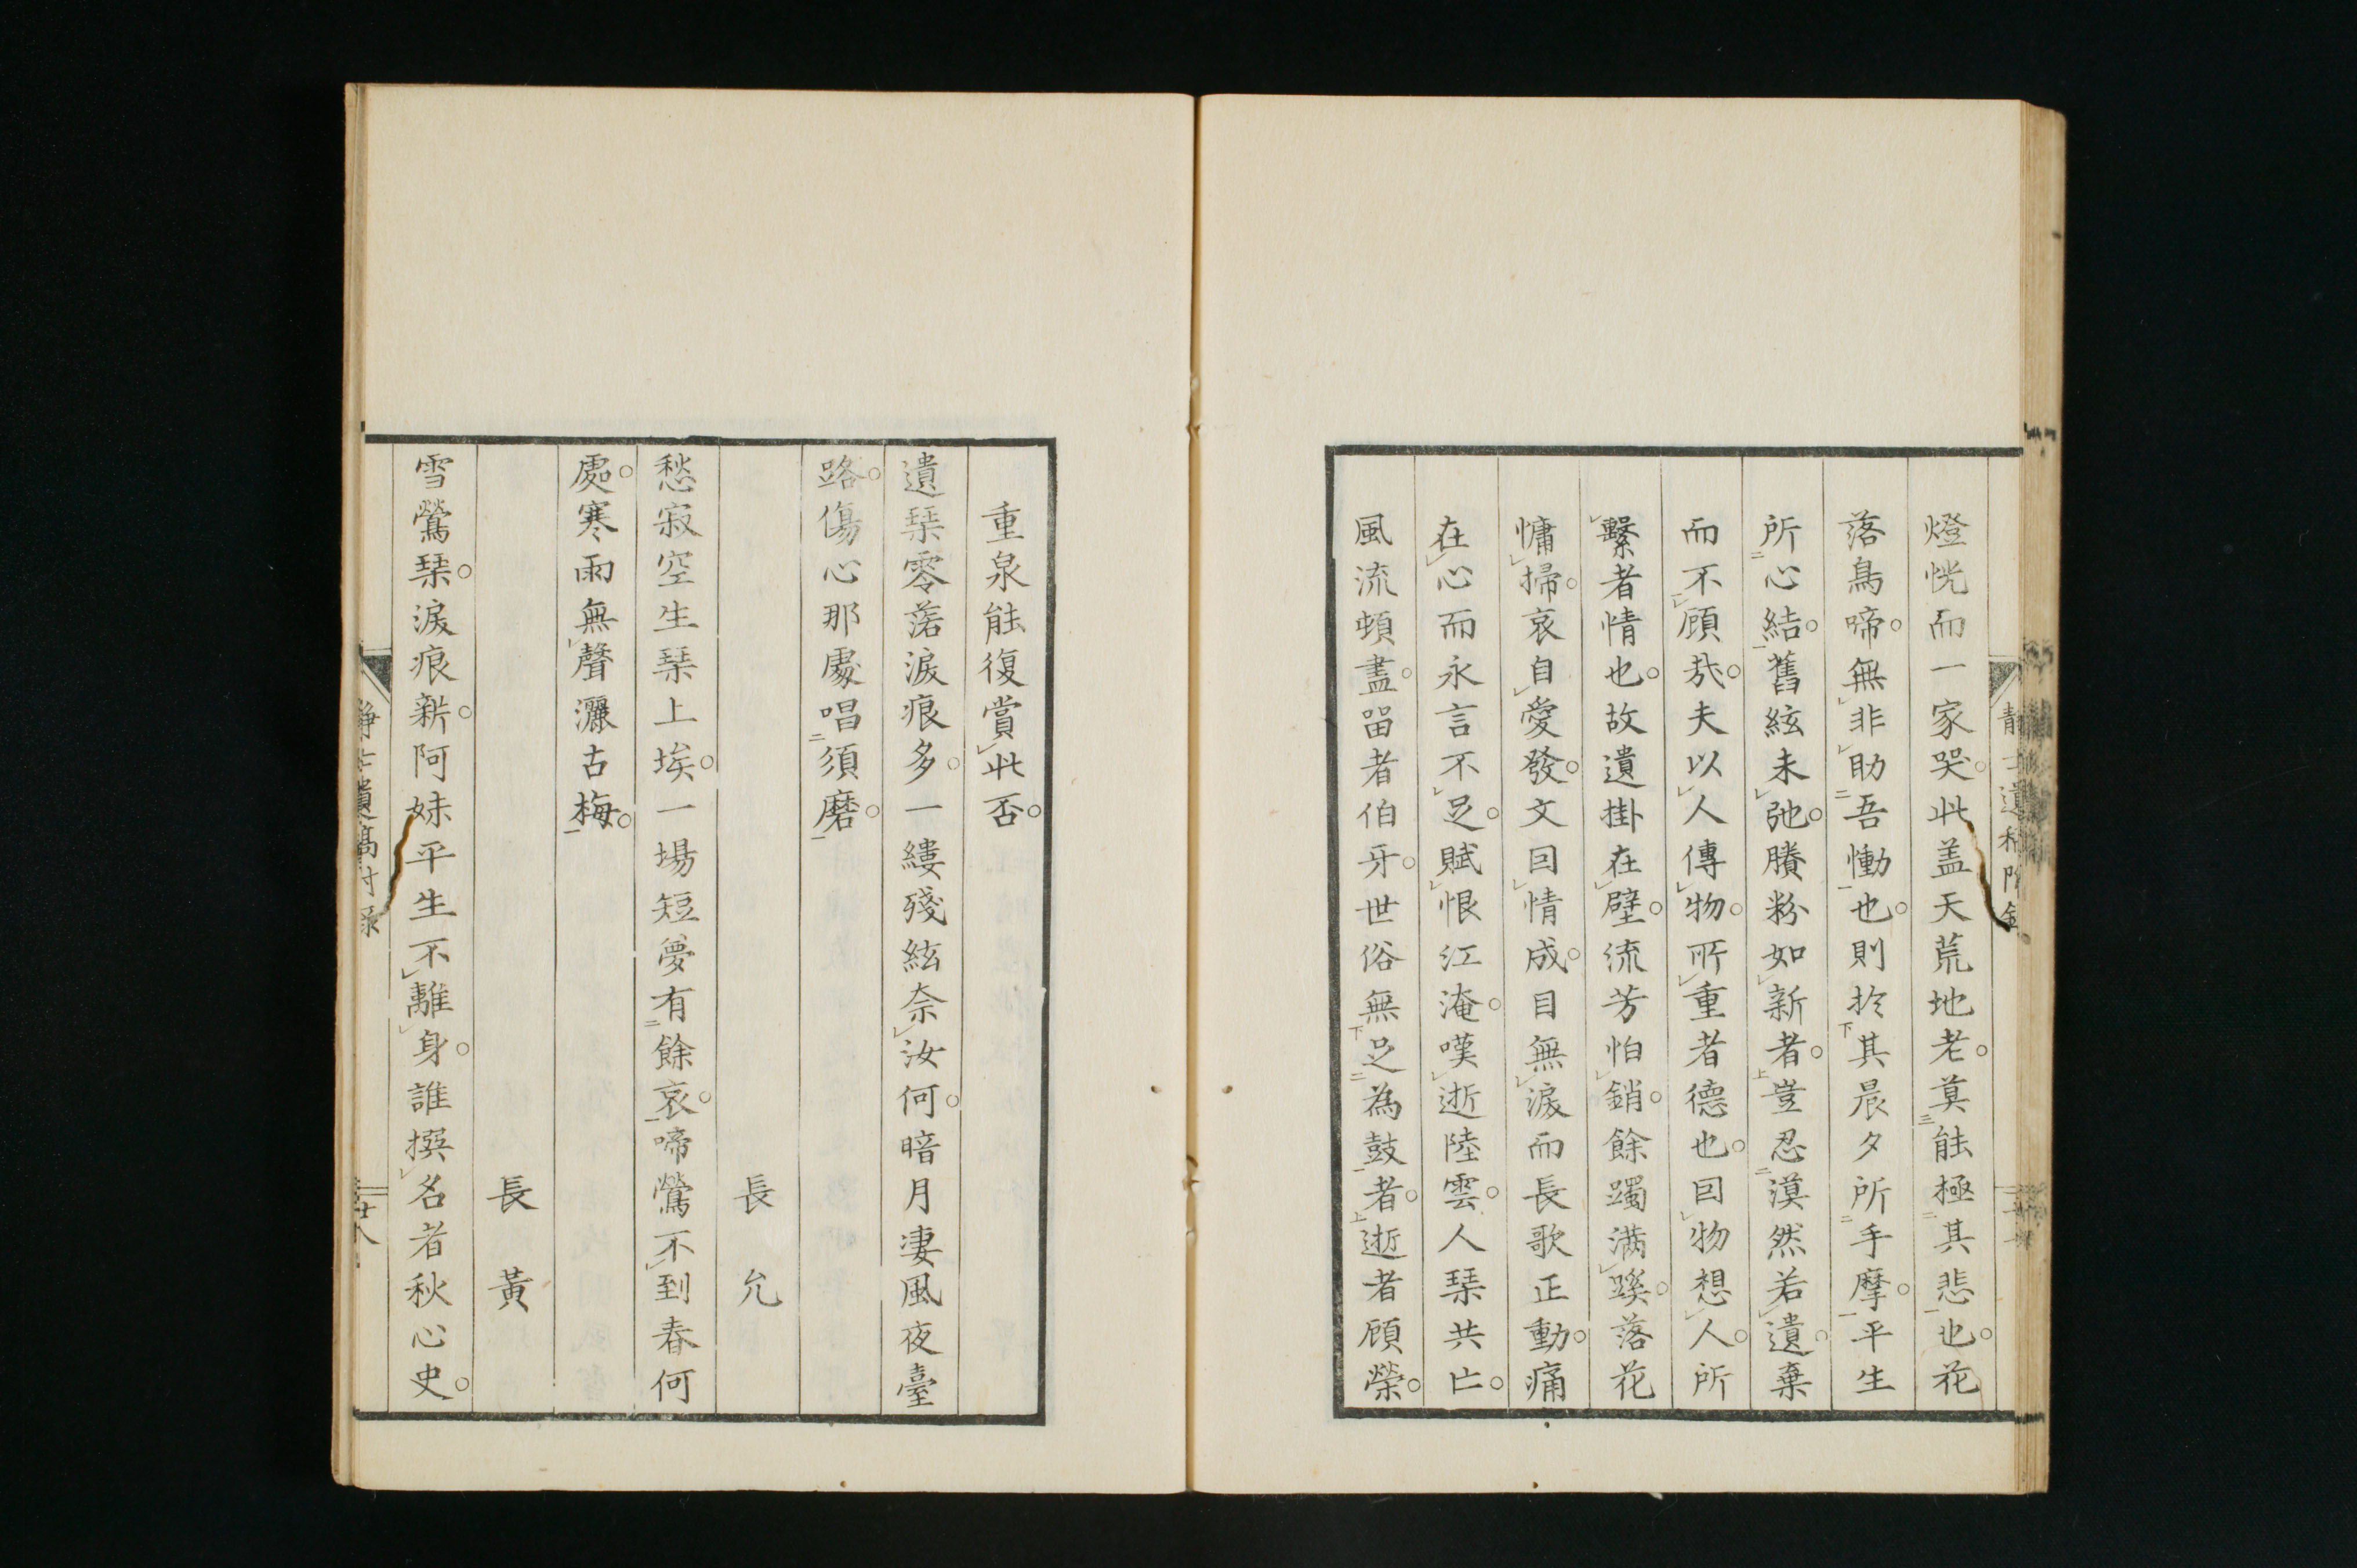 燈恍而一家哭此盖天荒地老莫能極其悲也花
落鳥啼無非助吾慟也則於其晨夕所手摩平生
所心結舊絃未弛賸粉如新者豈忍漠然若遺棄
而不顧哉夫以人傳物所重者德也因物想人所
繫者情也故遺掛在壁流芳怕銷餘躅满蹊落花
慵掃哀自愛發文因情成目無淚而長歌正動痛
在心而永言不足賦恨江淹嘆逝陸雲人琹共亡
風流頓盡畱者伯牙世俗無足為鼓者逝者顧榮
重泉能復賞此否
遺琹零落淚痕多一縷殘絃奈汝何暗月凄風夜臺
路傷心那處唱須磨
長允
愁寂空生琹上埃一場短夢有餘哀啼鶯不到春何
處寒雨無聲灑古梅
長黃
雪鶯琹淚痕新阿妹平生不離身誰撰名者秋心史